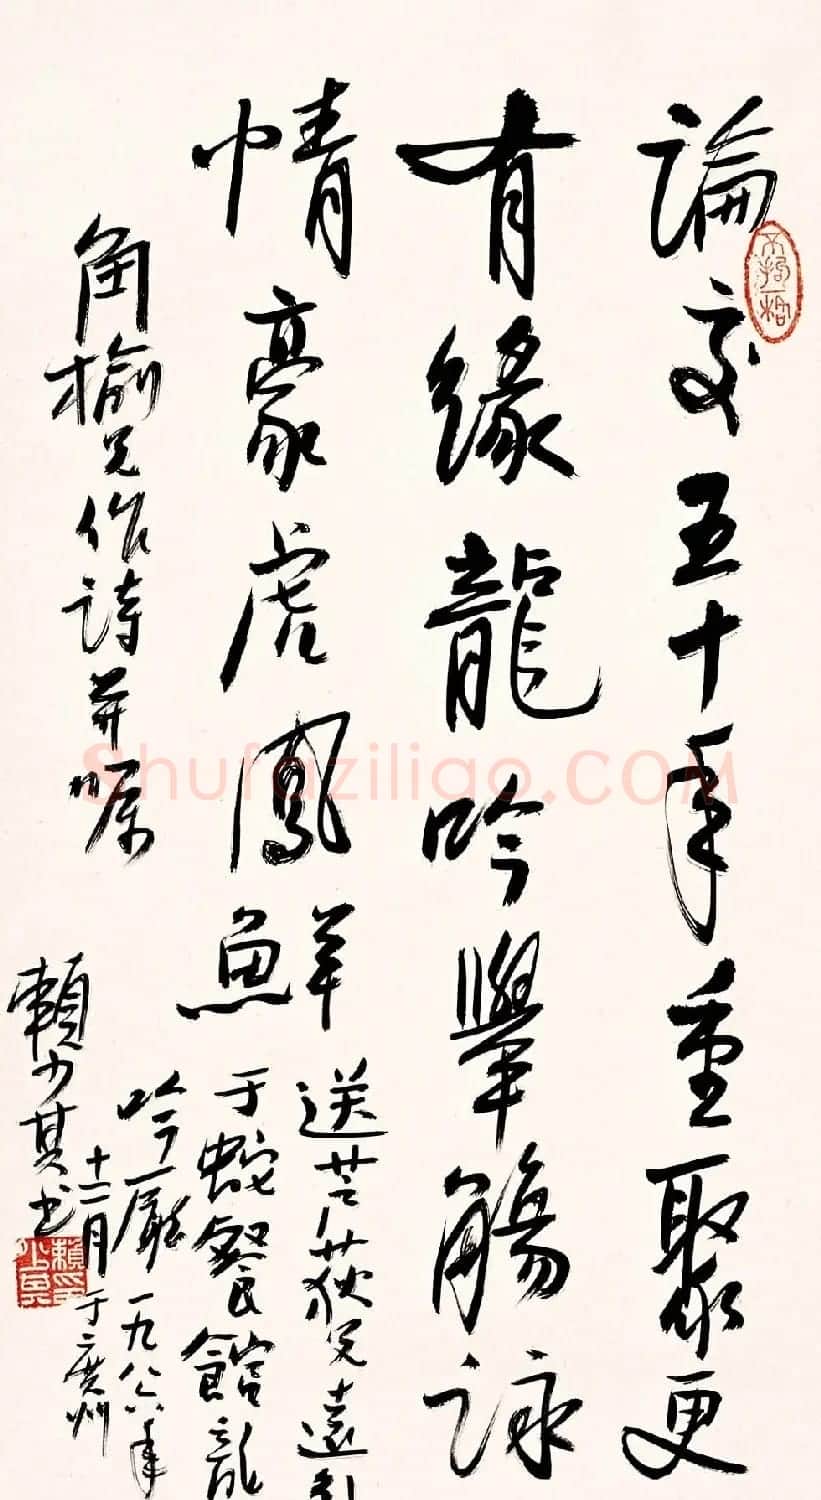 論交五十年重聚更
有緣龍吟舉觴詠
情豪虎鳳鮮
送芒荻兄遠引
于蛇餐館龍
吟廳一九八六年
十二月于廣州
角榆兄作詩并囑
賴少其書
不拘一格
賴少其
Shufaziliao.COM